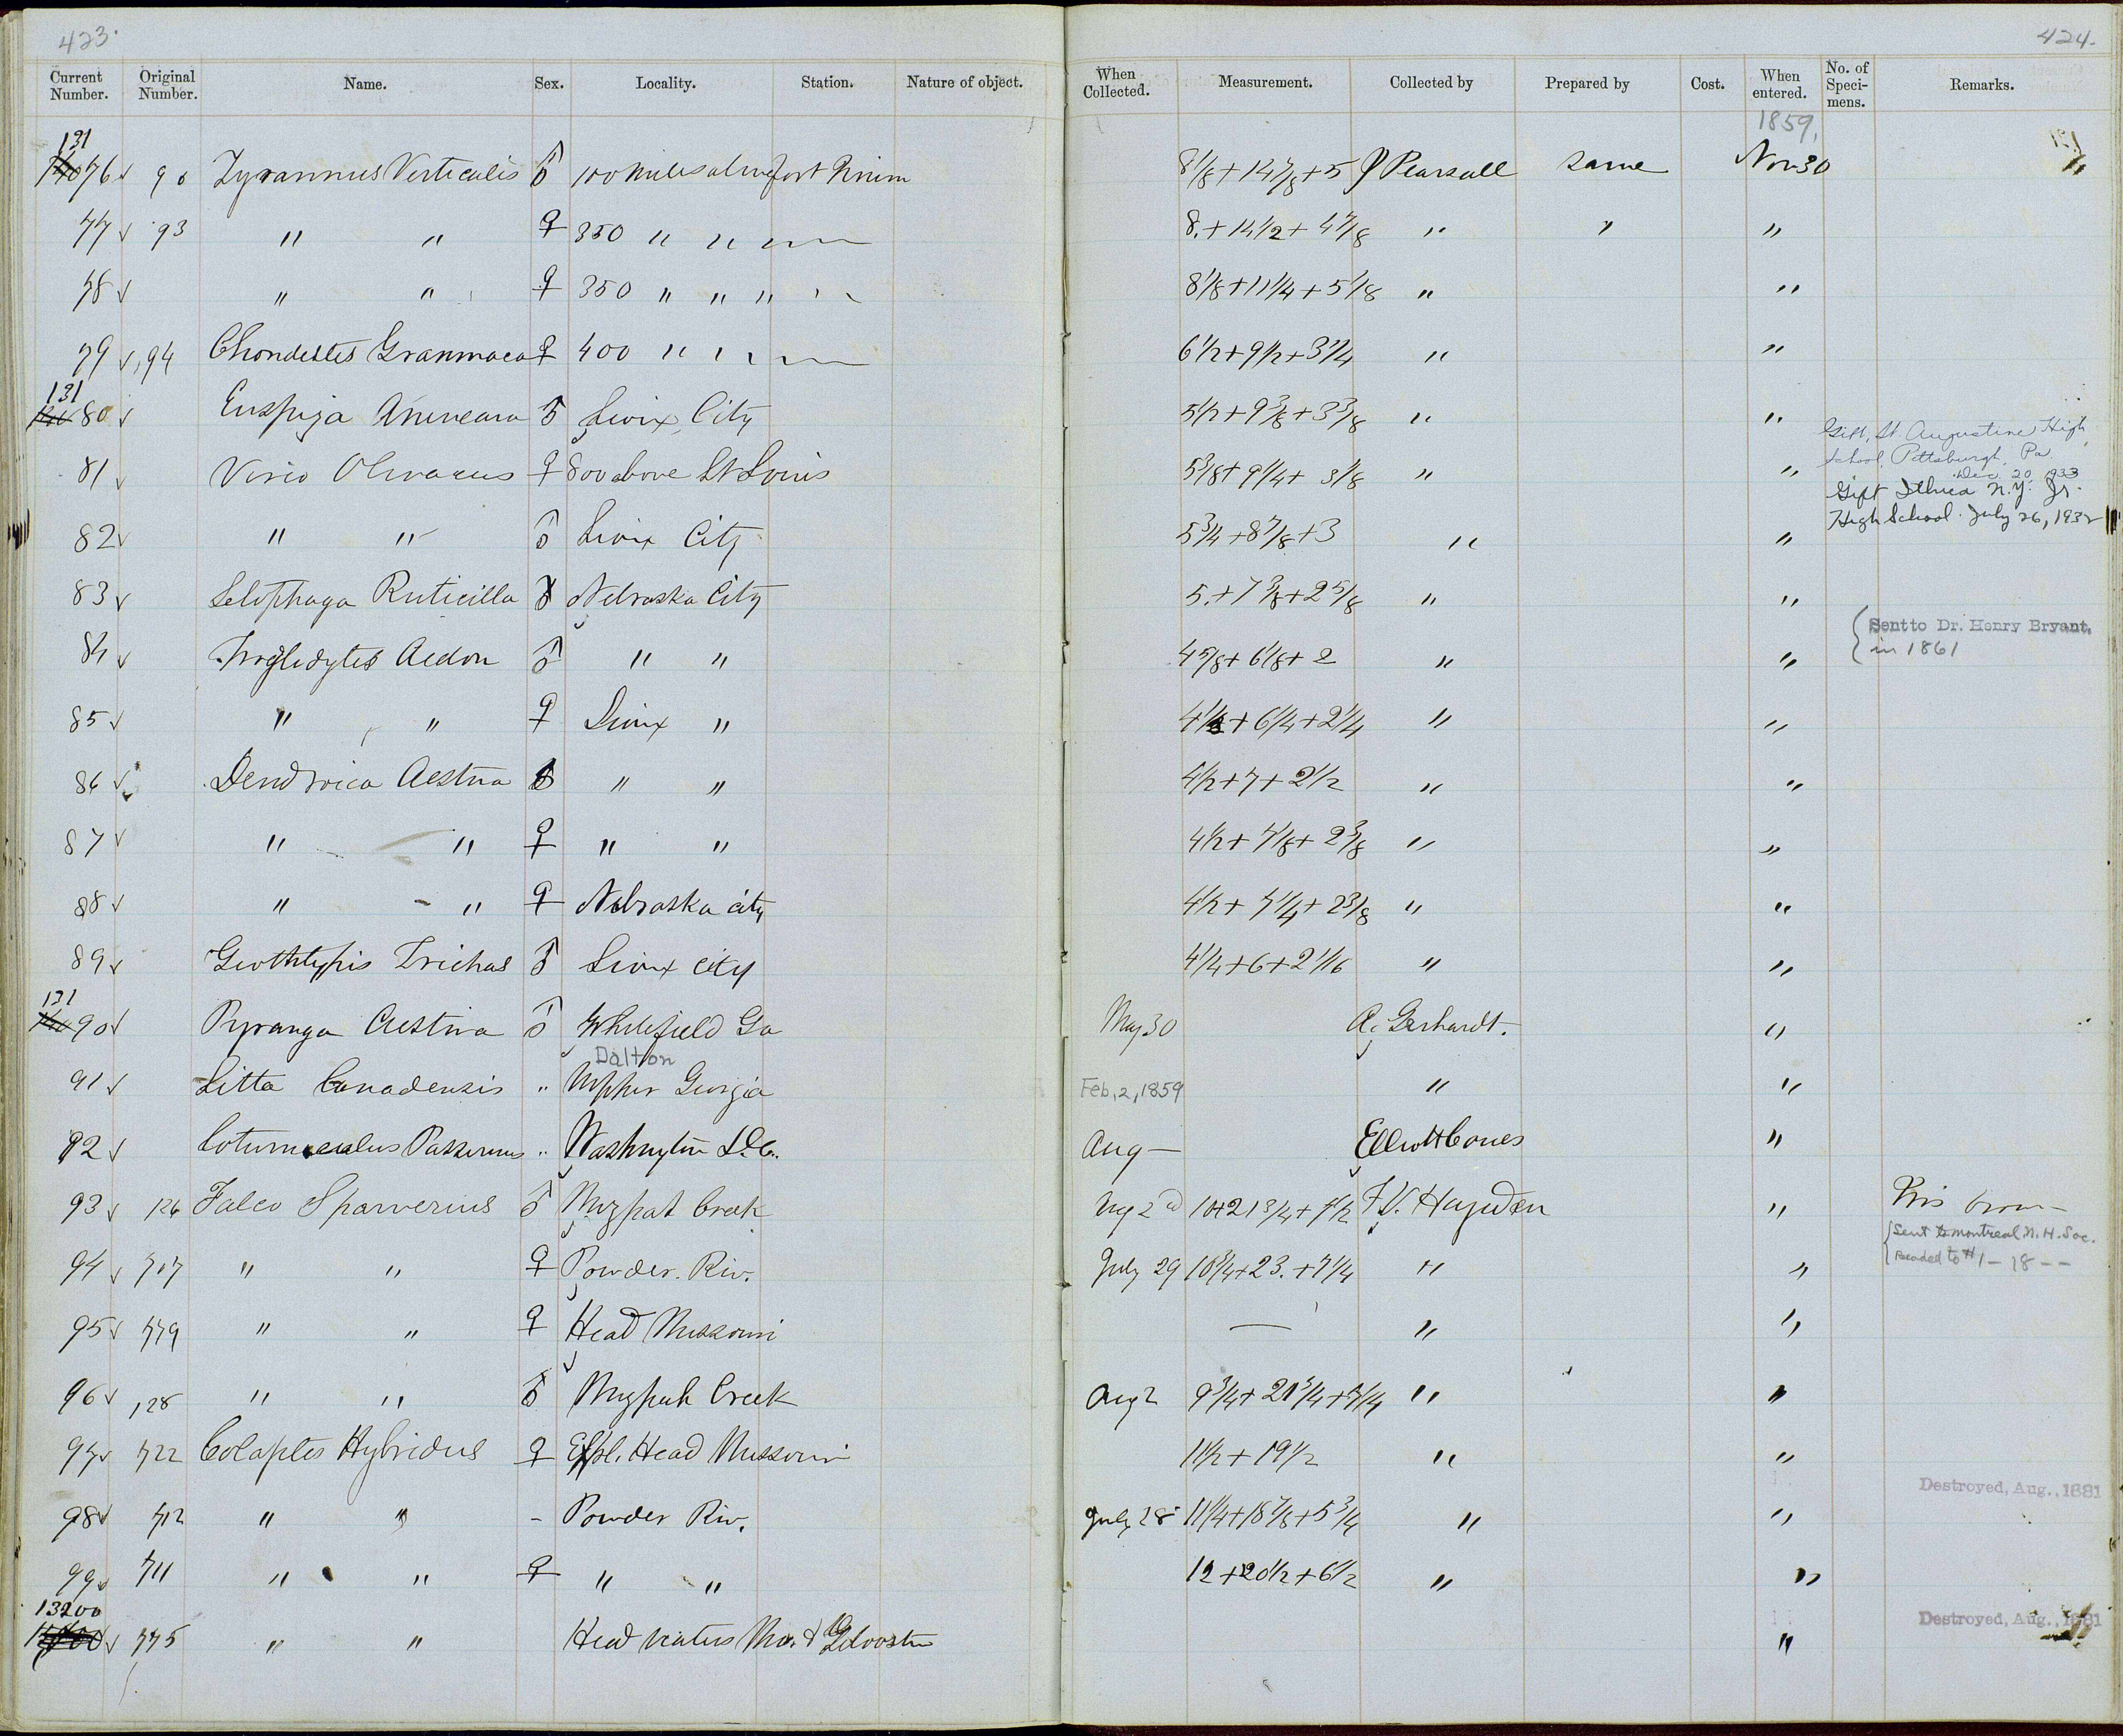 423.
424.
Current Number. Original Number. Name. Sex. Locality. Station. Nature of object. When Collected. Measurement. Collected by Prepared by Cost. When entered. No. of Speci-mens. Remarks.
1859.
131
76 90 Tyrannus Verticalis ♂ 100 miles above fort 8 1/8 + 14 7/8 + 5 J Pearsall same Nov 30 "
77 93 " " ♀ 350 " " 8. + 14 1/2 + 4 7/8 " " "
78 " " ♀ 350 " " " 8 1/8 + 11 1/4 + 5 1/8 " "
79 94 Chondestes Grammaca ♀ 400 " " 6 1/2 + 9 1/2 + 3 1/4 " "
131
80 Euspiza Americana ♂ Sioux City 5 1/2 + 9 3/8 + 3 3/8 " "
Gift, St. Augustine High
School, Pittsburgh, Pa.
Dec. 20, 1933
81 Vireo Olivaceus ♀ 800 above St Louis 5 3/8 + 9 1/4 + 3 1/8 " "
Gift Ithica N.Y. Jr.
High School. July 26, 1932
82 " " ♂ Sioux City 5 3/4 + 8 7/8 + 3 " "
83 Setophaga Ruticilla Nebraska City 5. + 7 3/8 + 2 5/8 " "
Sent to Dr. Henry Bryant.
in 1861
84 Troglodytes Aedon ♂ " " 4 5/8 + 6 1/8 + 2 " "
85 " " ♀ Sioux " 6 1/4 + 2 1/4 " "
86 Dendroica Aestiva ♂ " " 4 1/2 + 7 + 2 1/2 " "
87 " " ♀ " " 4 1/2 + 7 1/8 + 2 3/8 " "
88 " " ♀ Nebraska city 4 1/2 + 7 1/4 + 2 3/8 " "
89 Geothlypis Trichas ♂ Sioux city 4 1/4 + 6 + 2 1/16 " "
131
90 Pyranga Aestiva ♂ Whitefield Ga May 30 A. Gerhardt. "
Dalton
91 Sitta Canadensis " Upper Georgia Feb. 2, 1859 " "
92 Coturniculus Passerinus " Washington D.C. Aug — Elliott Coues "
93 126 Falco Sparverius ♂ Mizpah Creek Aug 2d 10 + 21 3/4 + 7 1/2 F.V. Hayden "
Sent to Montreal N. H. Soc.
94 717 " " ♀ Powder. Riv. July 29 10 3/4 + 23. + 7 1/4 " "
95 779 " " ♀ Head Missouri — " "
96 128 " " ♂ Mizpah Creek Aug 2 9 3/4 + 21 3/4 + 7 1/4 " "
97 722 Colaptes Hybridus ♀ Head Missouri 11 1/2 + 19 1/2 " "
Destroyed, Aug., 1881
98 712 " " - Powder Riv. July 28 11 1/4 + 18 7/8 + 5 3/4 " "
99 711 " " ♀ " " 12 + 20 1/2 + 6 1/2 " "
13200
775 " " Head waters Mo. & Yellowstone "
Destroyed, Aug., 1881